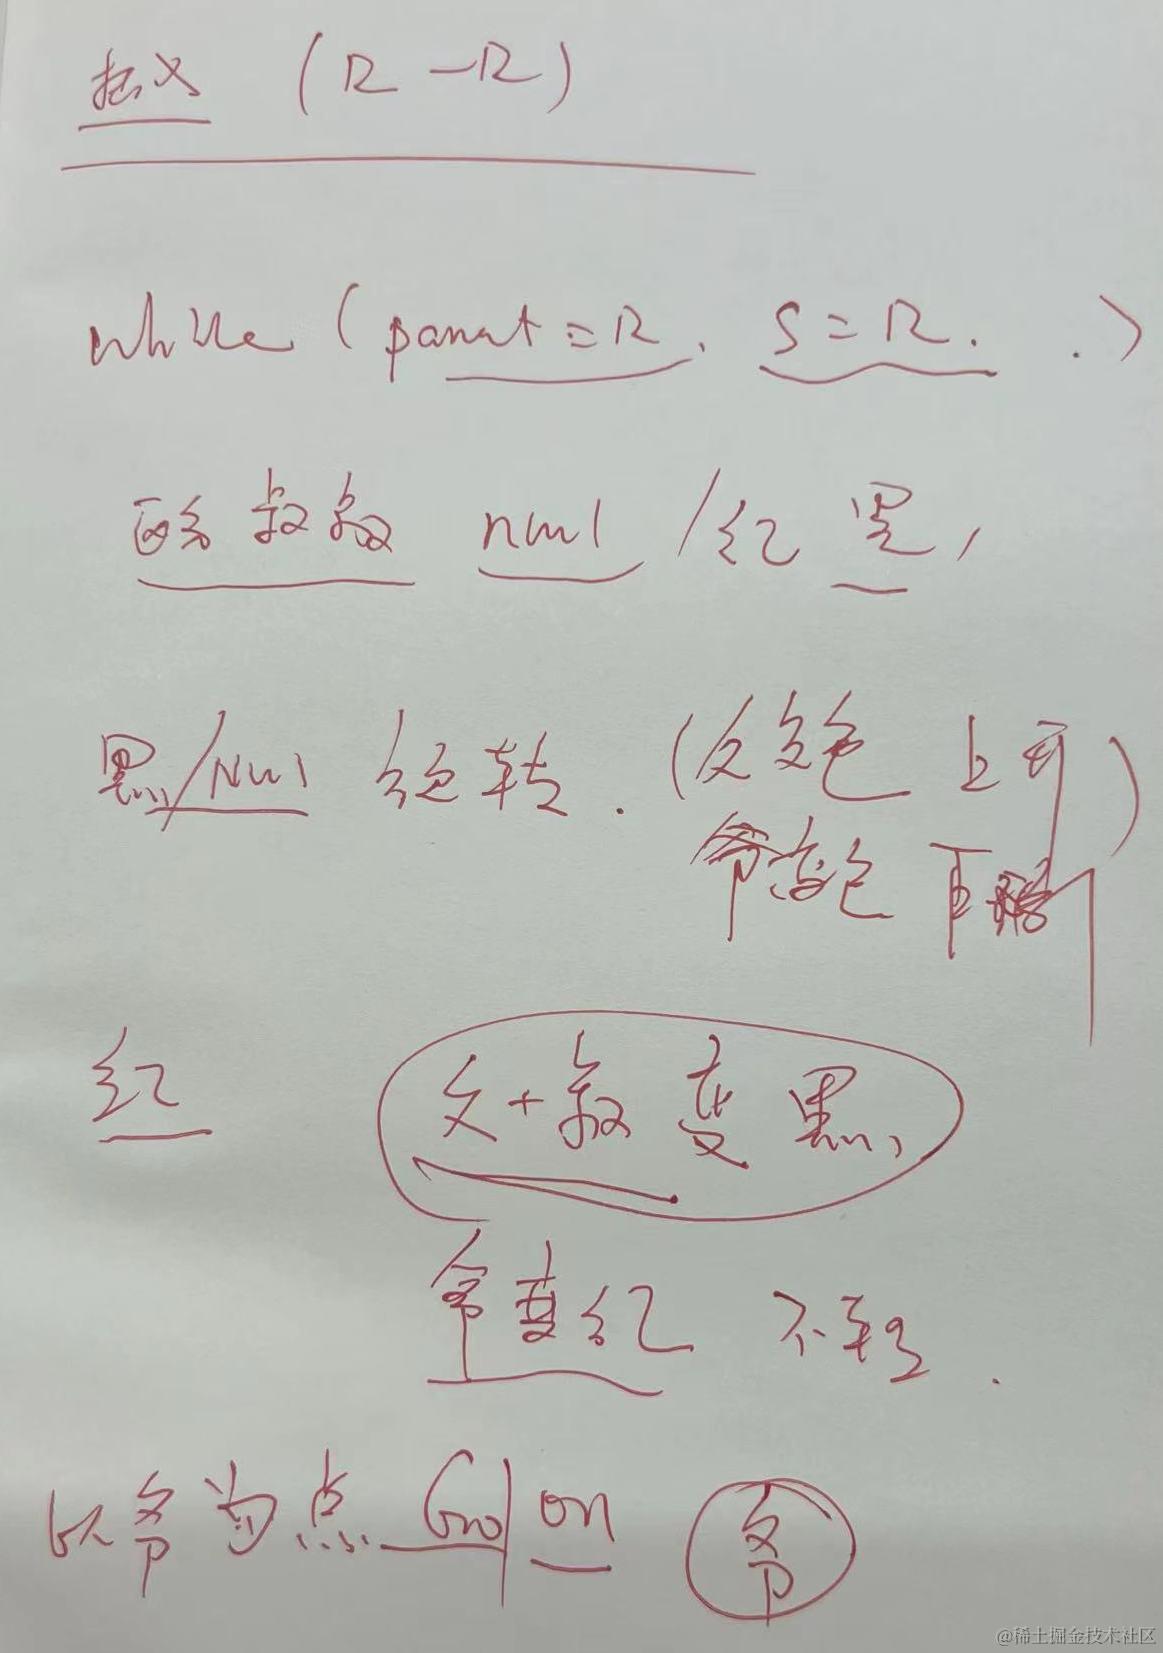 (R-R)
while (parent=R. S=R. .)
叔叔 null /红 黑,
黑/Null 转. (父变色
爷变色 再
红 父+叔 变 黑,
爷变红 不转.
以爷为点 Go on 爷
@稀土掘金技术社区